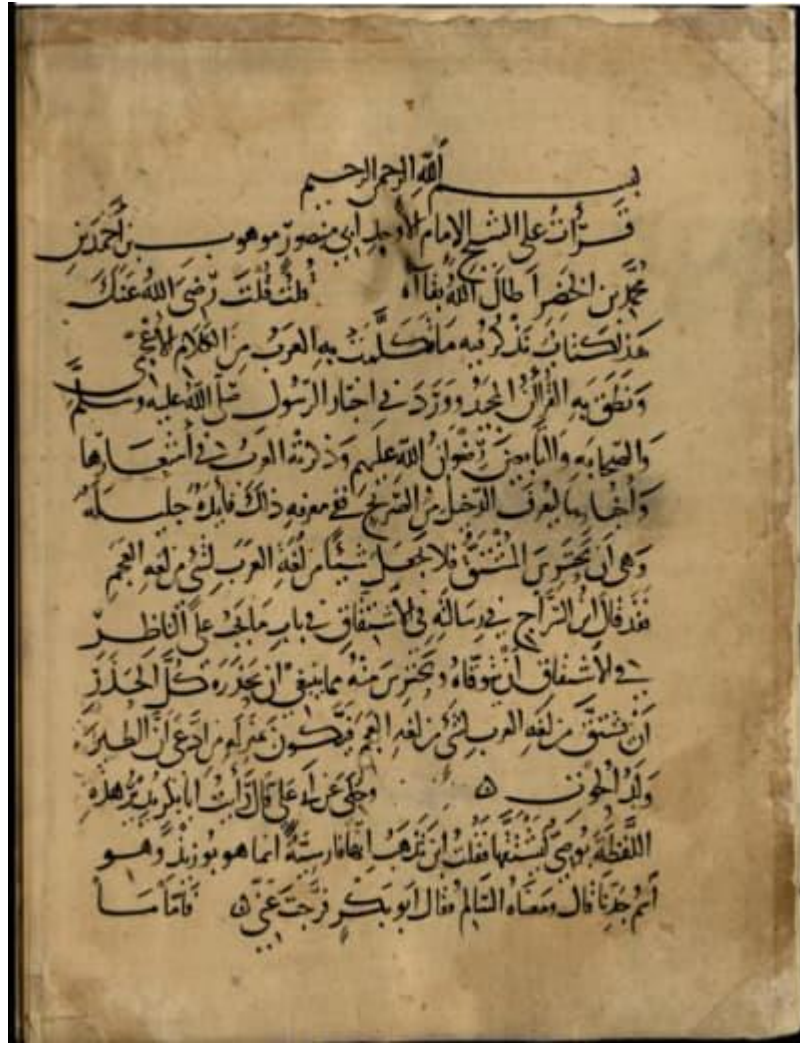 بسم الله الرحمن الرحيم
قرأت على الشيخ الامام الأوحد أبي منصور موهوب بن أحمد بن
محمد بن الخضر اطال الله بقاءه قلت قلت رضي الله عنك
هذا كتاب نذكر فيه ما تكلمت به العرب من الكلام الأعجمي
ونطق به القرآن المجيد وورد في اخبار الرسول صلى الله عليه وسلم
والصحابة والتابعين رضوان الله عليهم وذكرته العرب في أشعارها
وأخبارها ليعرف الدخيل من الصريح ففي معرفة ذلك فائدة جليلة
وهي أن يحترس المشتق فلا يجعل شيئا من لغة العرب لشيء من لغة العجم
فقد قال ابن السراج في رسالته في الاشتقاق في باب ما يجب على الناظر
في الاشتقاق أن يتوقاه ويحترس منه مما ينبغي ان يحذره كل الحذر
أن يشتق من لغة العرب لشيء من لغة العجم فيكون بمنزلة من ادعى أن الطير
ولد الحوت ۞ وحكي عن أبي علي قال رأيت أبا بكر يدير هذه
اللفظة بوصي ليشتقها فقلت أين تذهب إنها فارسية انما هو بوزيذ وهو
اسم جدنا قال ومعناه السالم فقال ابو بكر فرجت عني ۞ فأما ما